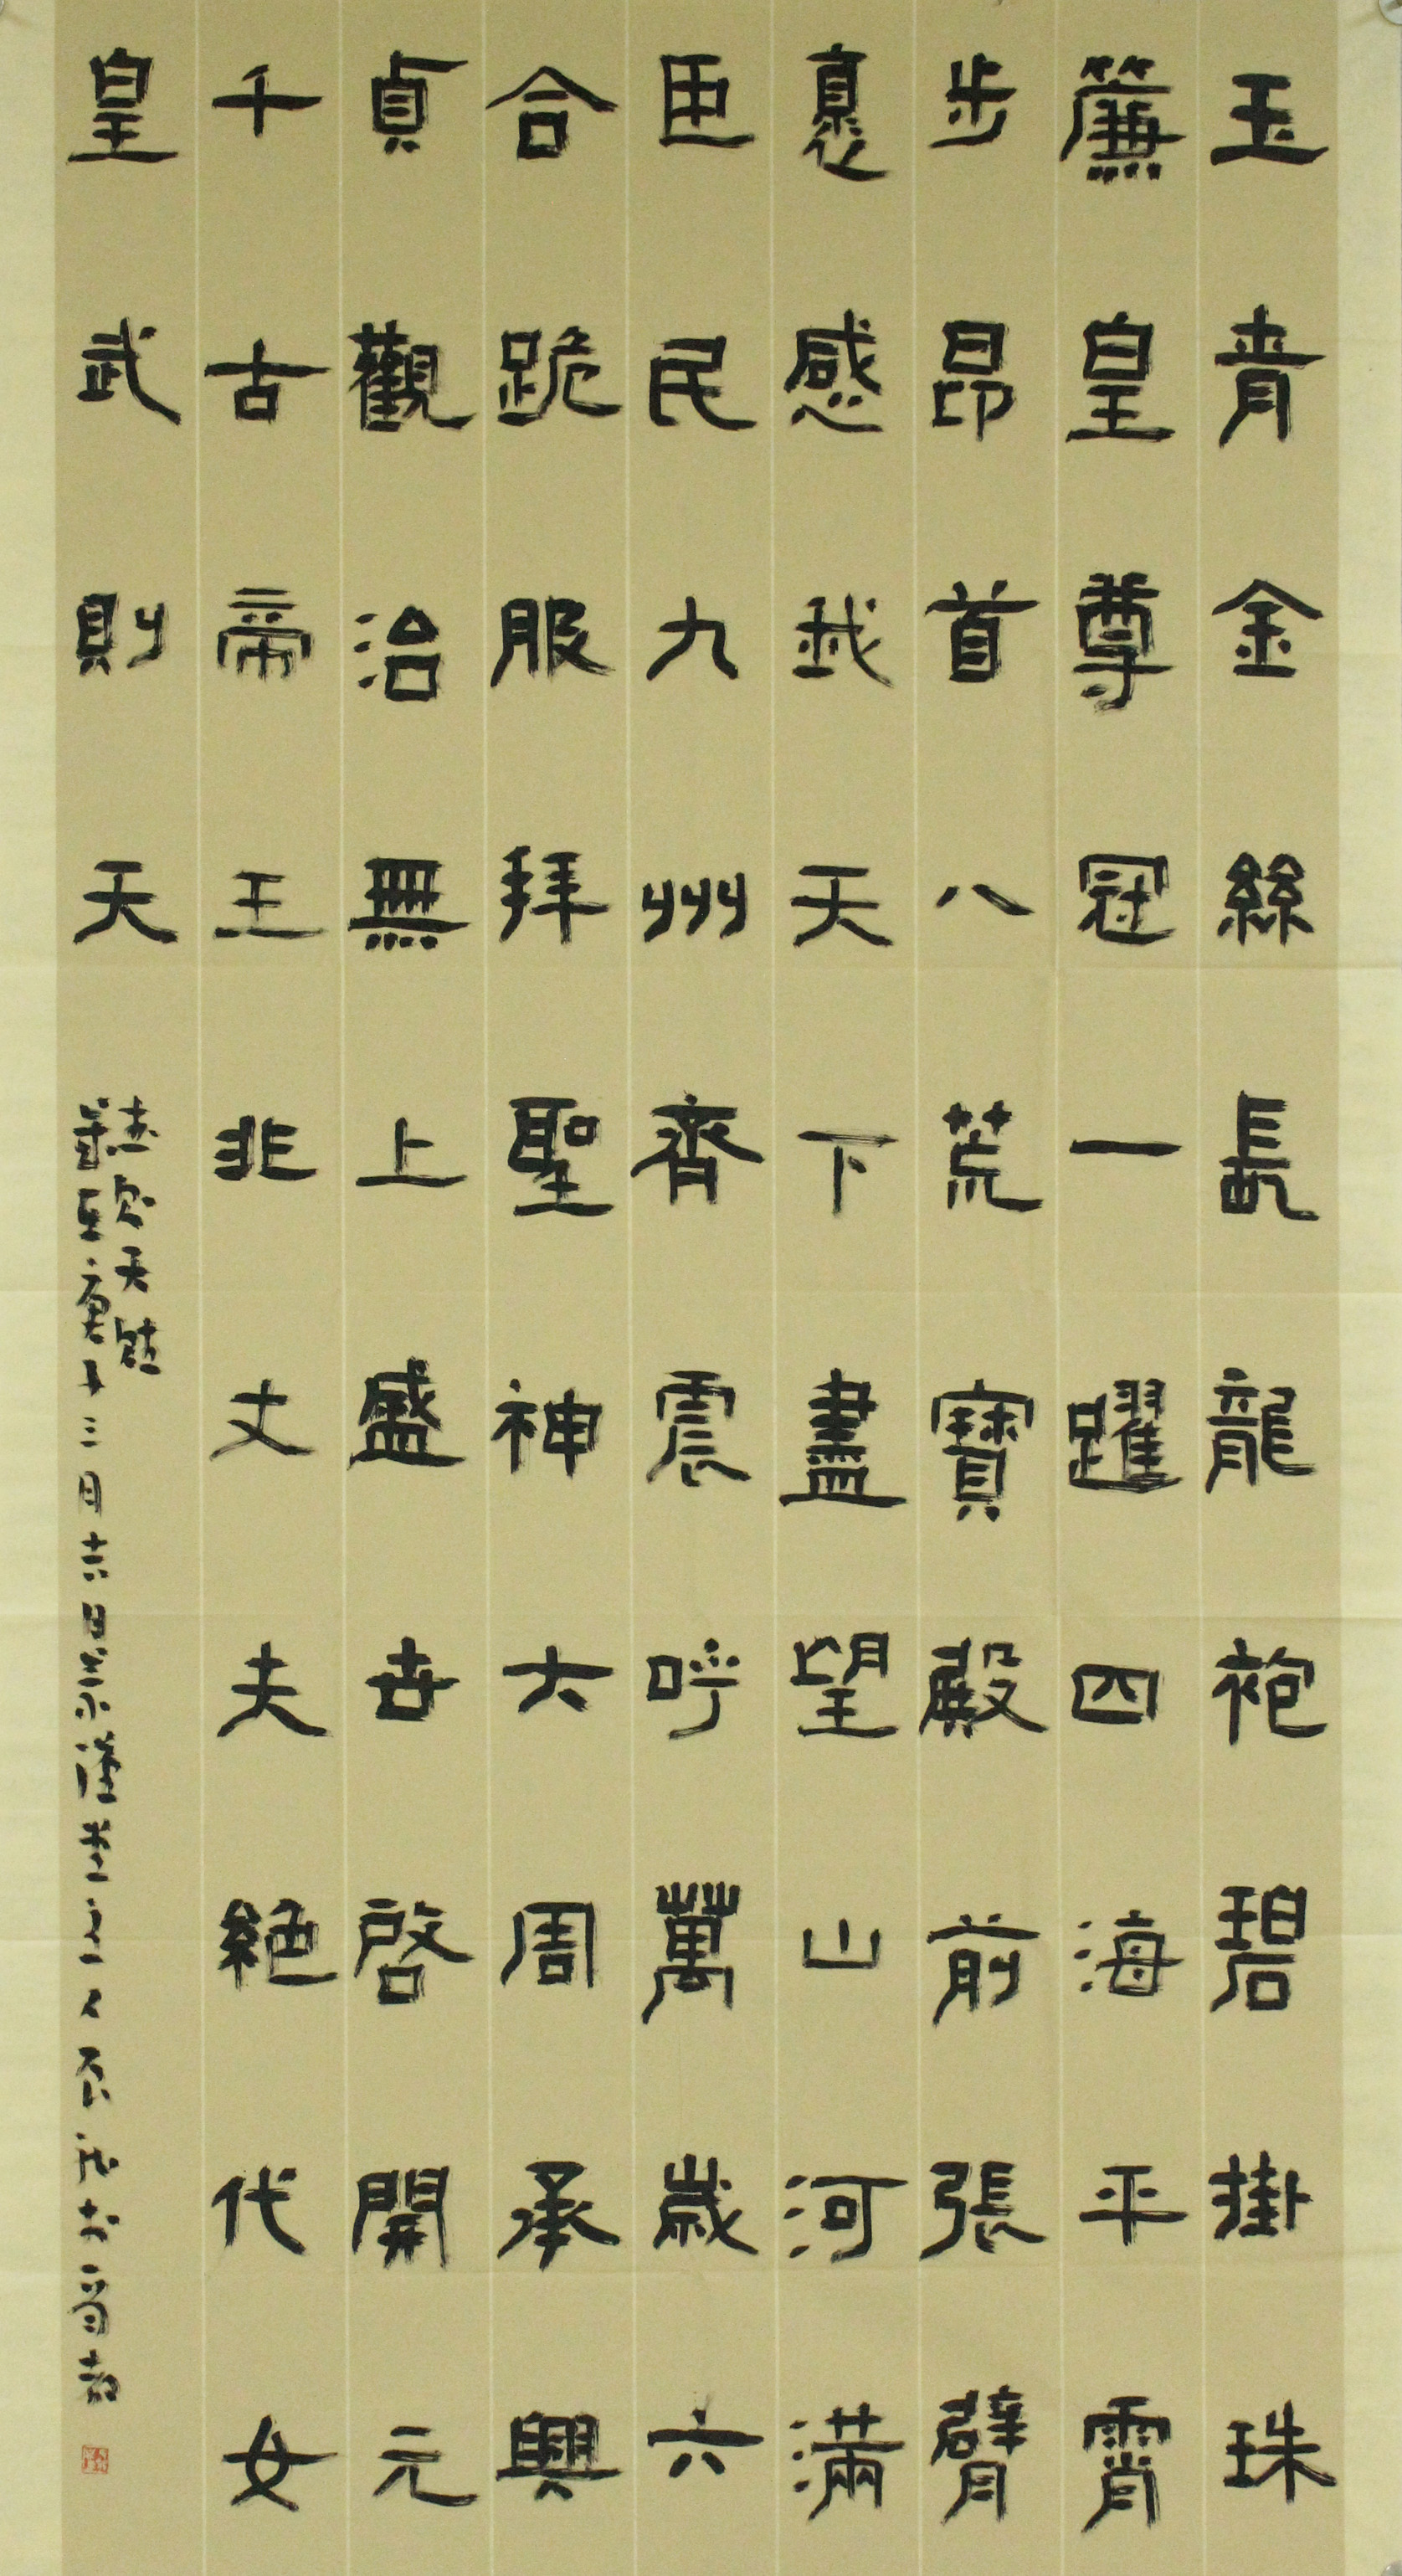 玉青金絲長龍袍碧掛珠
簾皇尊冠一躍四海平霄
步昂首八荒寶殿前張臂
裏感我天下盡望山河滿
臣民九州齊震呼萬歲六
合跪服拜聖神大周承興
貞觀治無上盛世啓開元
千古帝王非丈夫絕代女
皇武則天